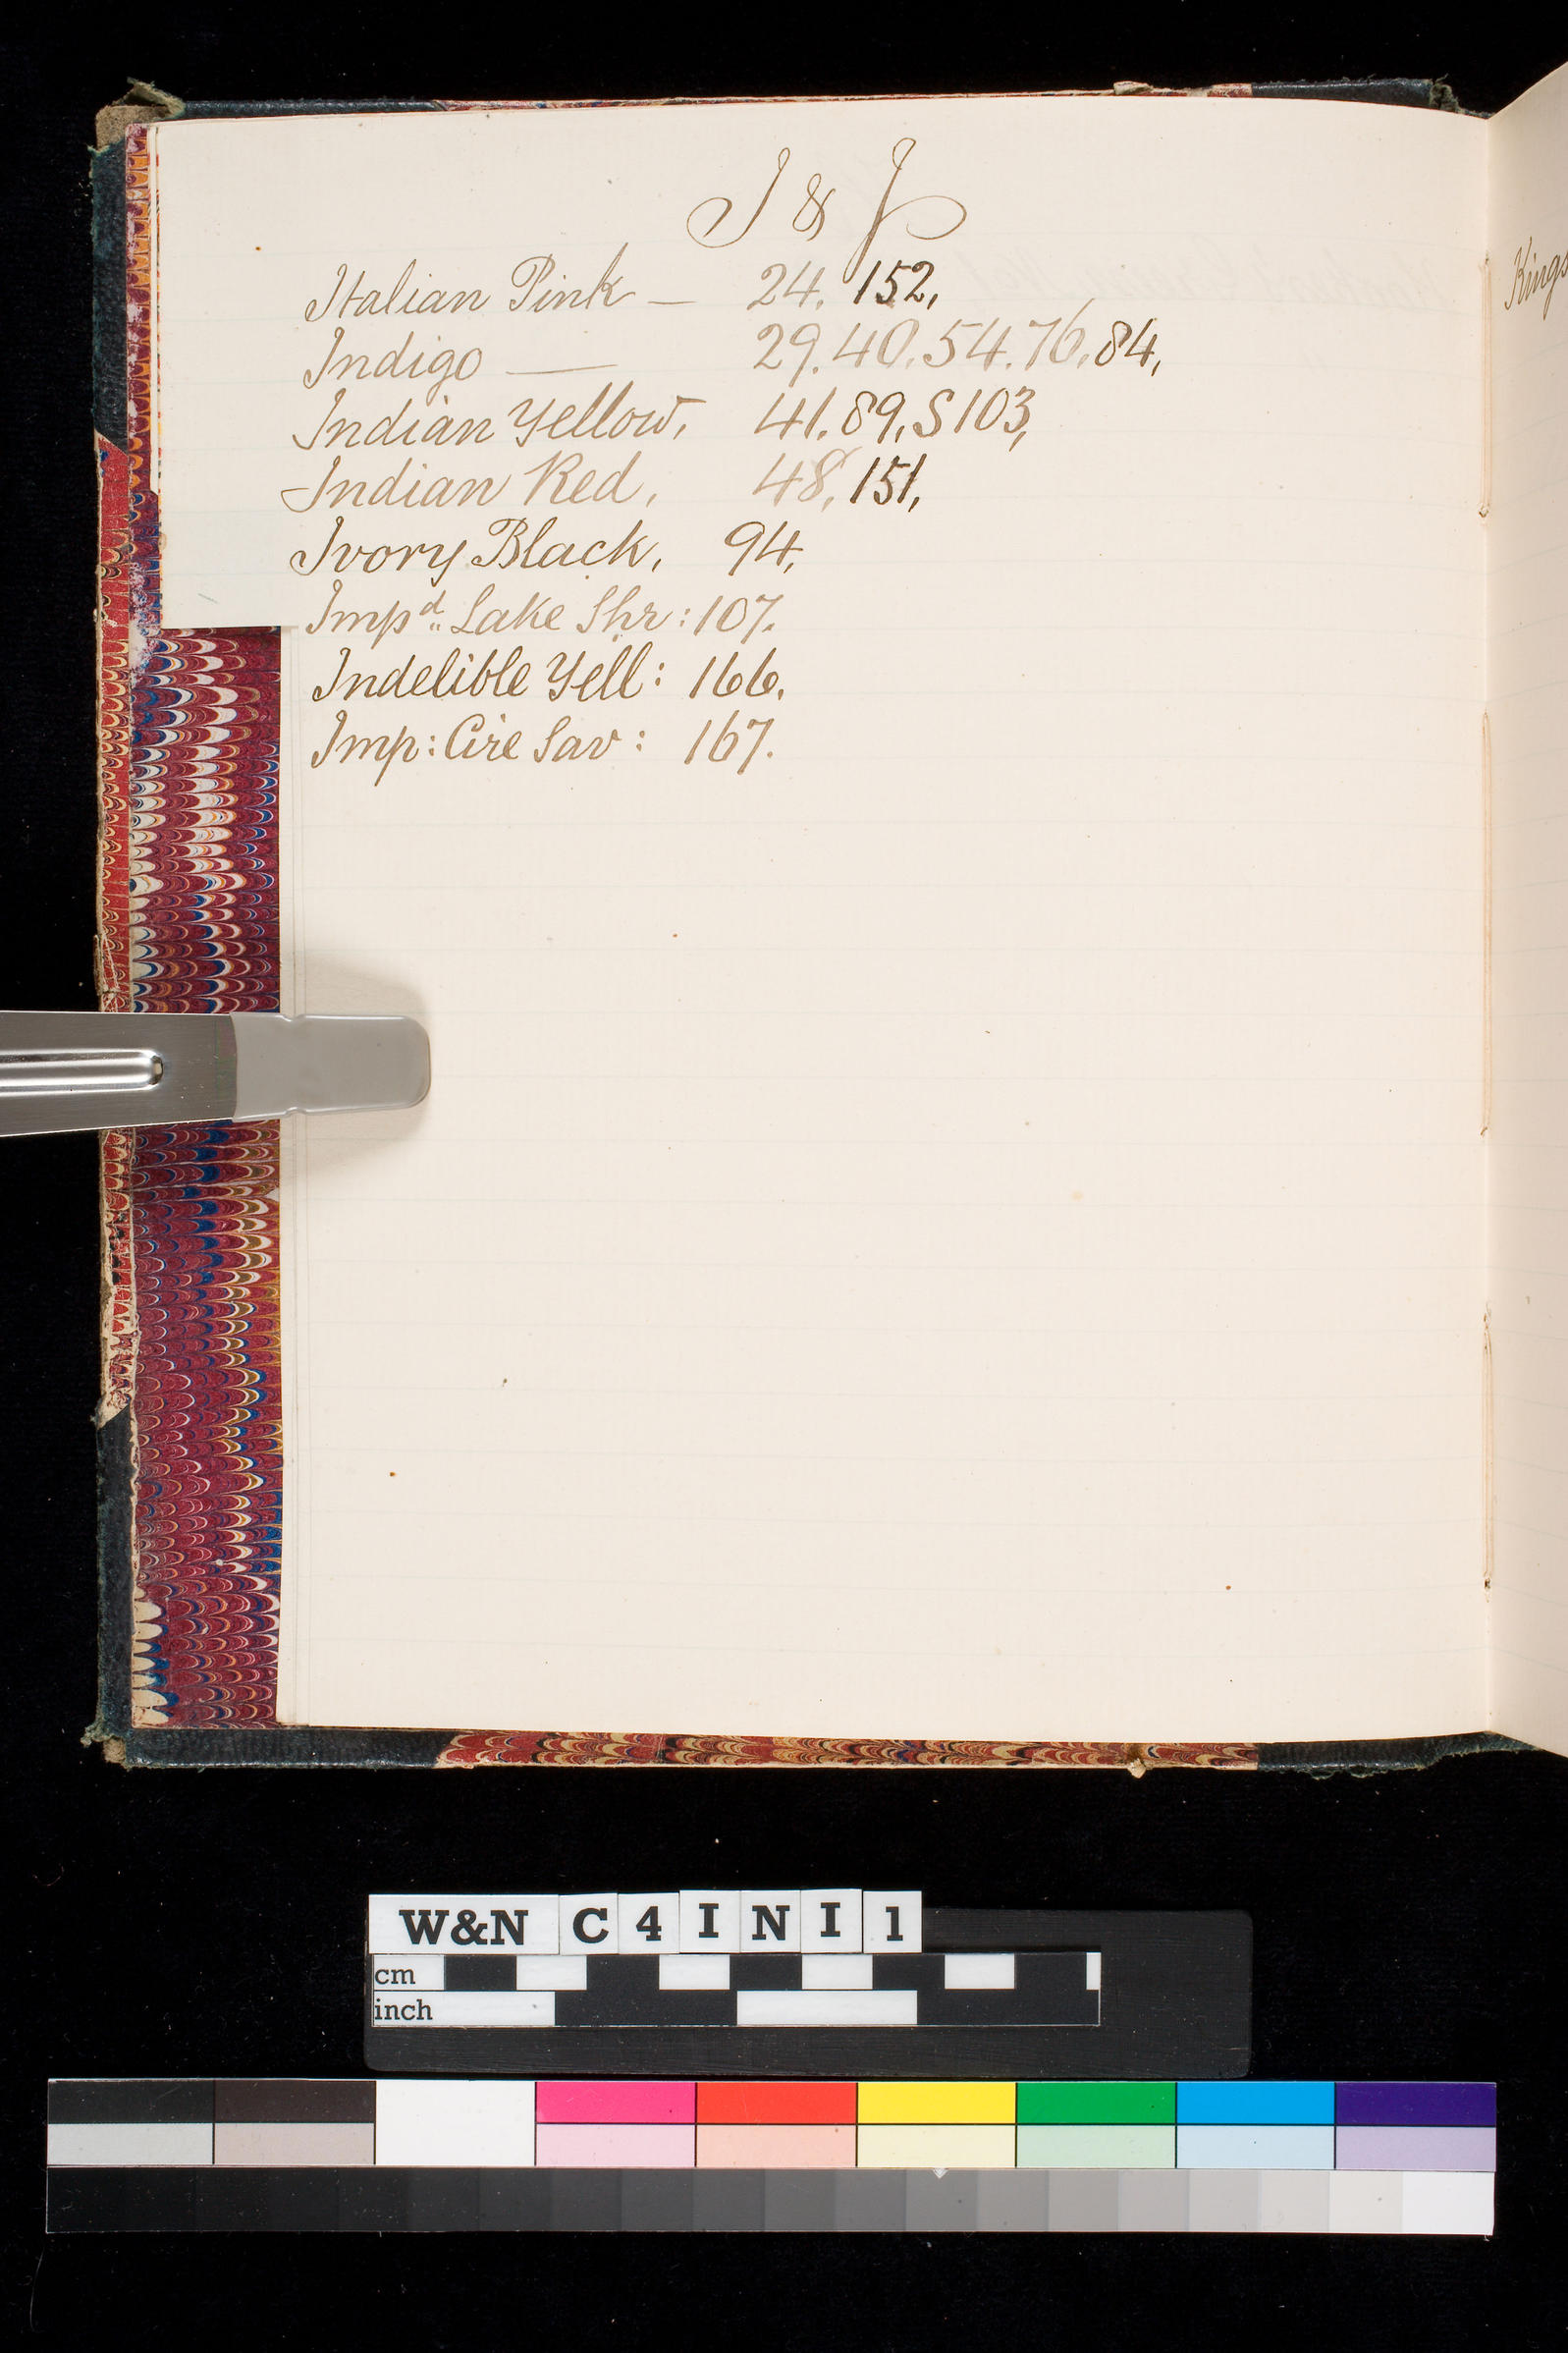 I & J
Italian Pink — 24. 152,
Indigo — 29. 40. 54. 76. 84,
Indian Yellow, 41. 89, S103,
Indian Red, 48, 151,
Ivory Black, 94,
Impd. Lake Shr: 107.
Indelible Yell: 166.
Imp: Cire Sav: 167.
Kings
W&N C 4 I N I 1
cm
inch